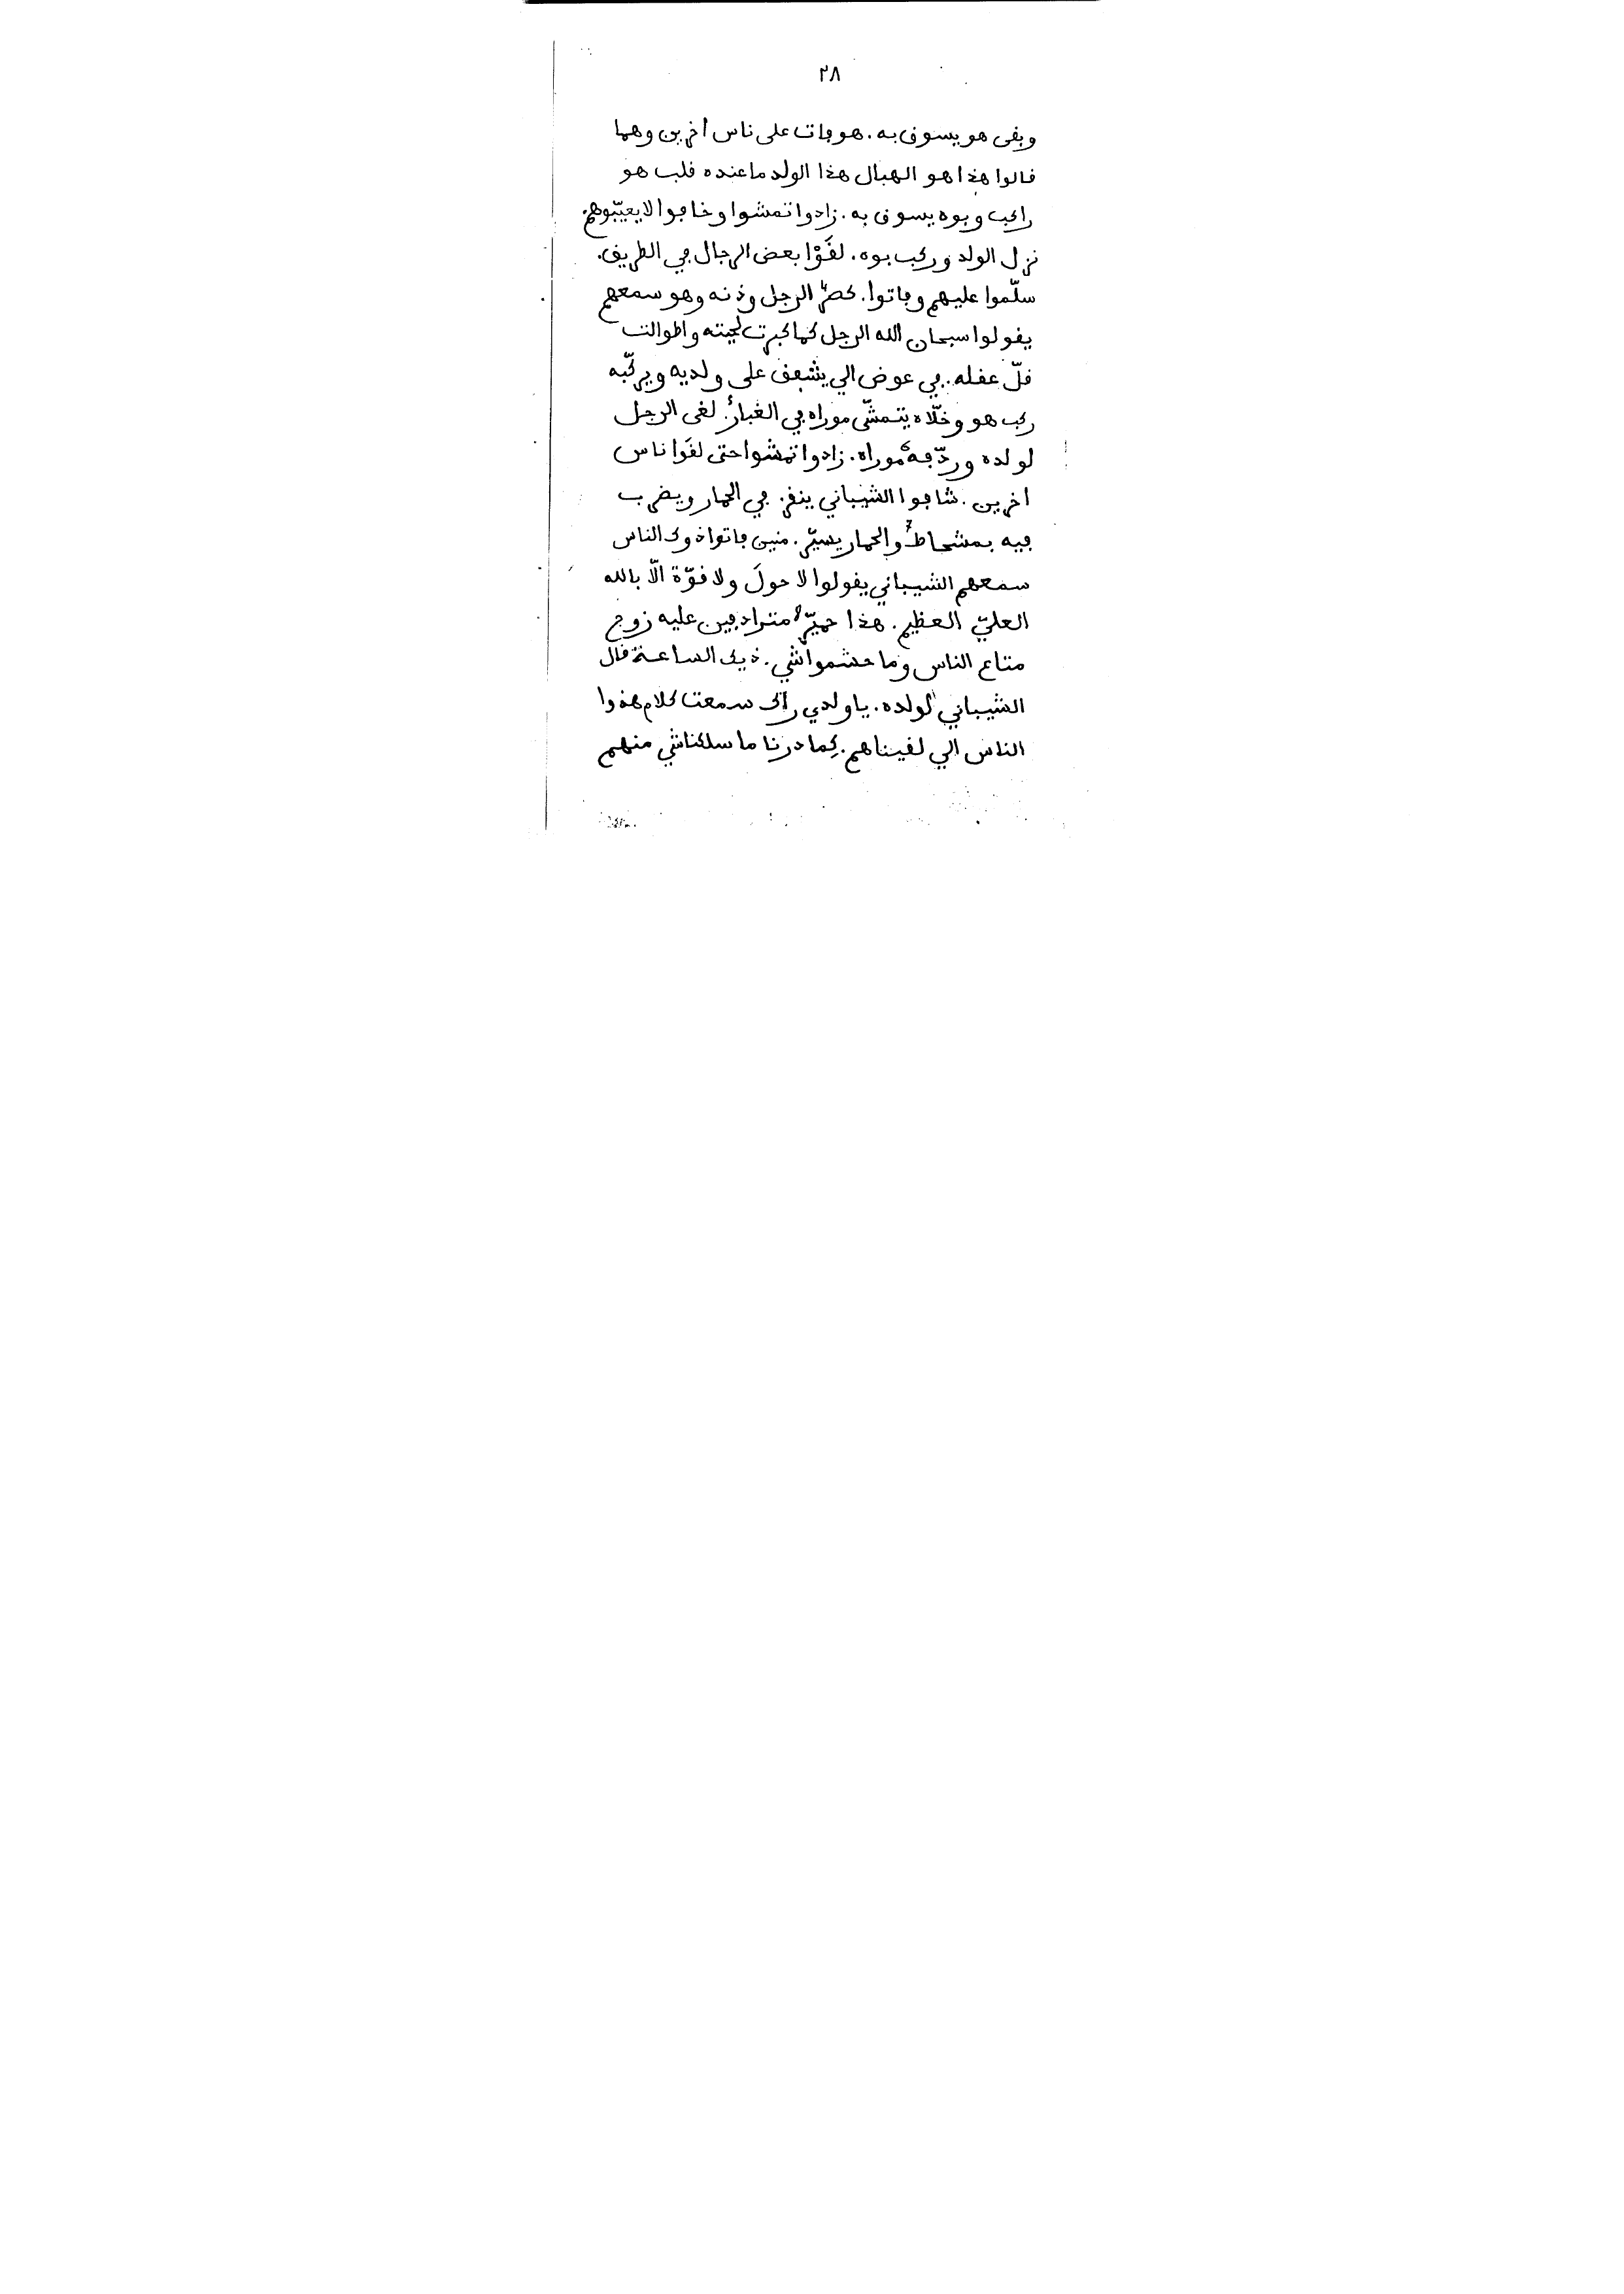 ٢٨
وبفى هو يسوف به. هو ڢات على ناس أخرين وهما
فالوا هذا هو الهبال هذا الولد ما عنده فلب هو
راكب وبوه يسوف به. زادوا تمشوا وخاڢوا لا يعيّبوهم.
نزل الولد وركب بوه. لفَوْا بعض الرجال ڢي الطريف.
سلّموا عليهم وڢاتوا. كصر⁴ الرجل وذنه وهو سمعهم
يفولوا سبحان الله الرجل كما كبرت لحيته واطوالت
فلّ عفله. ڢي عوض الي يشڢف على ولديه ويركّبه
ركب هو وخلّاه يتمشّى موراه ڢي الغبار⁵. لغى الرجل
لولده وردّڢه⁶ موراه. زادوا تمشوا حتى لفَوا ناس
اخرين. شاڢوا الشيباني ينفر ڢي الحمار ويضرب
ڢيه بمشحاط⁷ والحمار يسيّر. منين ڢاتوا ذوك الناس
سمعهم الشيباني يفولوا لا حولَ ولا فوّة الّا بالله
العليّ العظيم. هذا حميّر⁸ مترادڢين عليه زوج
متاع الناس وما حشمواشي. ذيك الساعة فال
الشيباني لولده. يا ولدي راك سمعت كلام هذوا
الناس الي لفيناهم. كِما درنا ما سلكناشي منهم